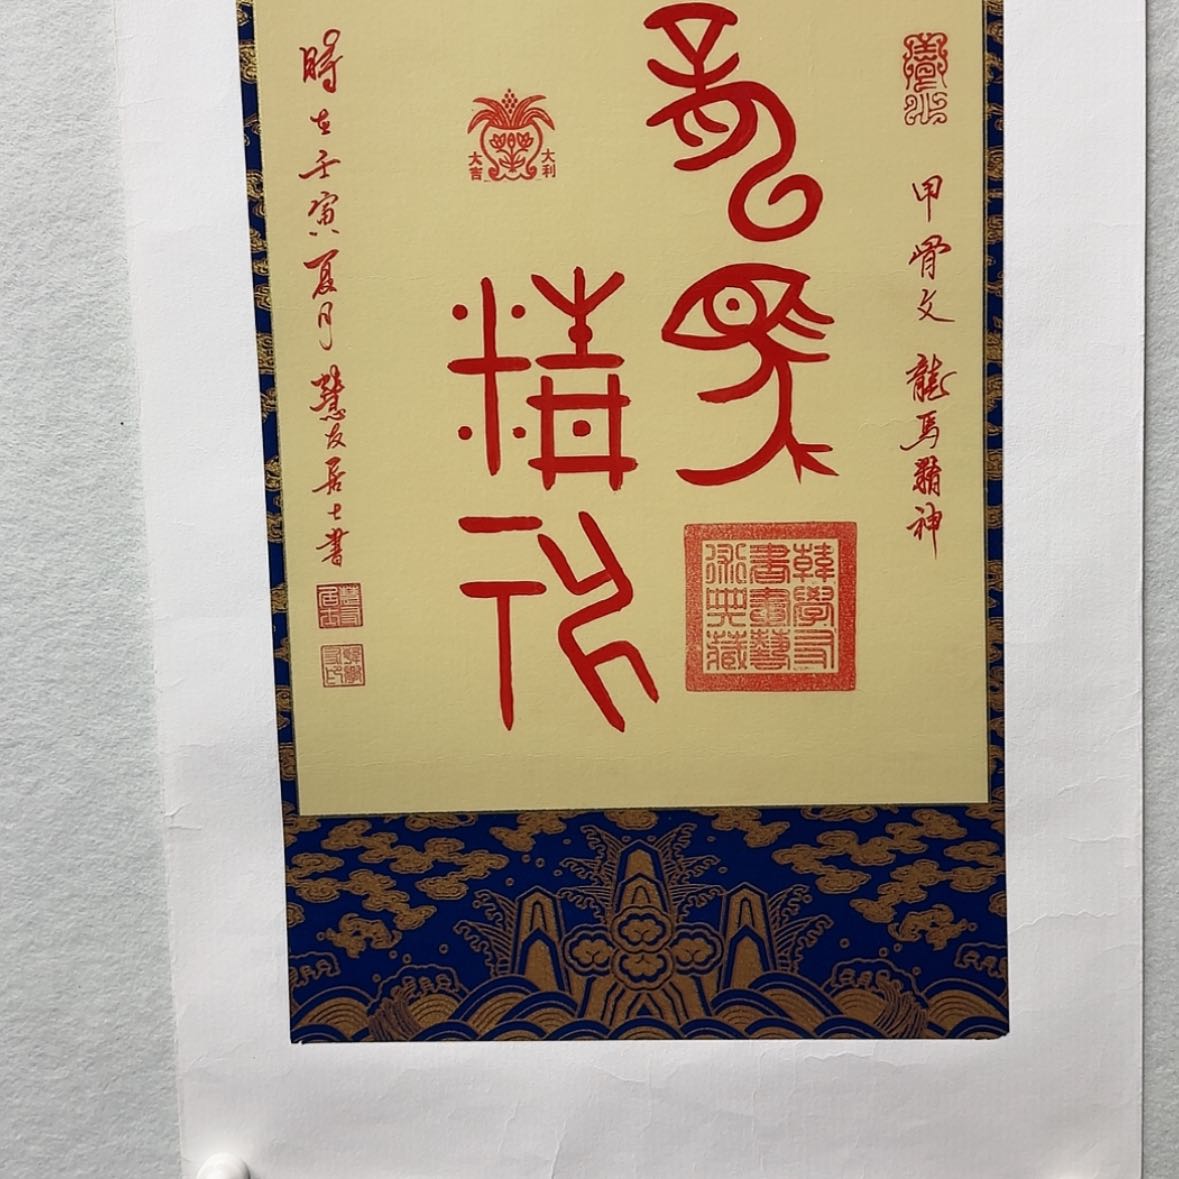 甲骨文 龍馬精神
龍馬
精神
大吉
大利
時在壬寅夏月 慧友居士書
韓學友
書畫藝
術典藏